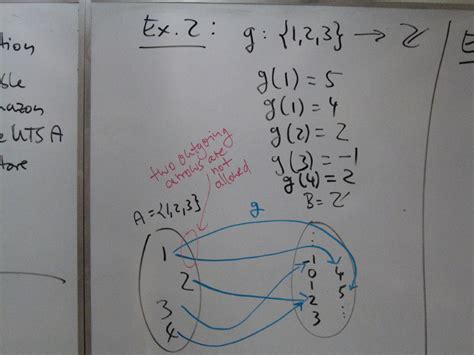 Ex. 2: g: {1,2,3} → ℤ
g(1) = 5
g(1) = 4
g(2) = 2
g(3) = -1
g(4) = 2
two outgoing
arrows are
not
allowed
A = {1,2,3}
g
B = ℤ
1
2
3
4
⋮
-1
0
1
2
3
4
5
⋮
UTSA